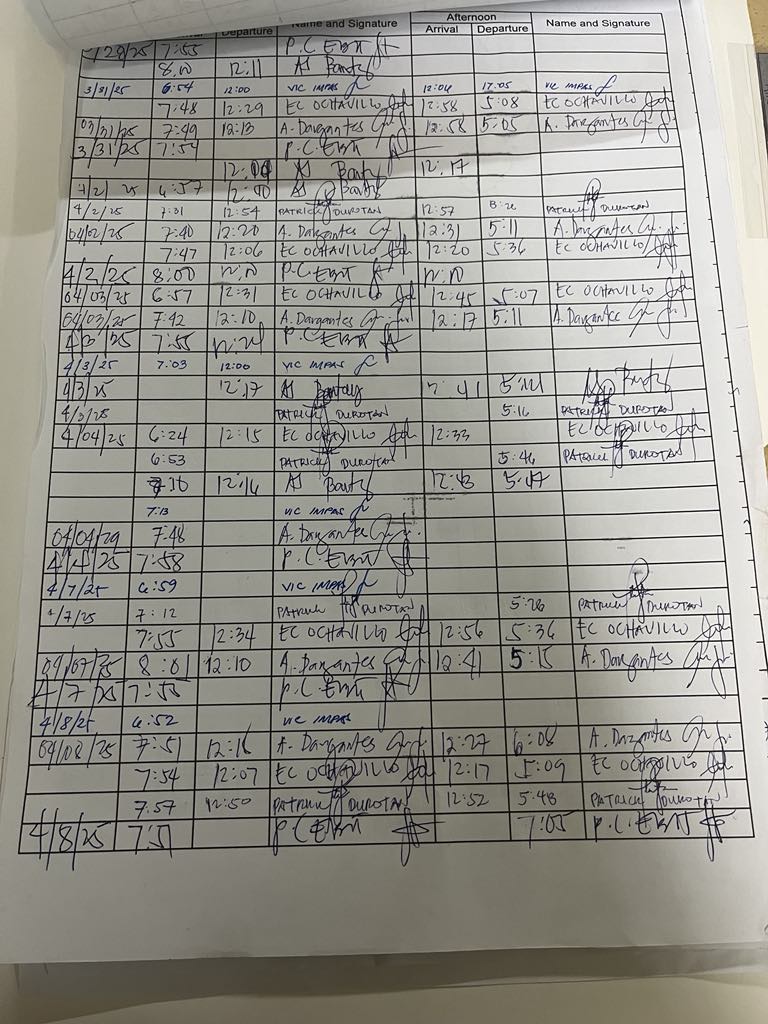 Afternoon
Departure Name and Signature Arrival Departure Name and Signature
7:55 P.C EBIT
8:10 12:11 AS Bantz
3/31/25 6:54 12:00 VIC IMPAS 12:06 17:05 VIC IMPAS
7:48 12:29 EC OCHAVILLO 12:58 5:08 EC OCHAVILLO
03/31/25 7:49 12:13 A. Dargantes 12:58 5:05 A. Dargantes
3/31/25 7:54 P.C EBIT
AS 12:17
4/2/25 6:57 AS
4/2/25 7:31 12:54 PATRICK DUROTAN 12:57 PATRICK DUROTAN
04/02/25 7:40 12:20 A. Dargantes 12:31 5:11 A. Dargantes
7:47 12:06 EC OCHAVILLO 12:20 5:36 EC OCHAVILLO
4/2/25 8:00 P.C EBIT
04/03/25 6:57 12:31 EC OCHAVILLO 12:45 5:07 EC OCHAVILLO
04/03/25 7:42 12:10 A. Dargantes 12:17 5:11 A. Dargantes
4/3/25 7:55 P.C EBIT
4/3/25 7:03 12:00 VIC IMPAS
4/3/25 12:17 AS
PATRICK DUROTAN 5:16 PATRICK DUROTAN
4/04/25 6:24 12:15 EC OCHAVILLO 12:33 EC OCHAVILLO
6:53 PATRICK DUROTAN 5:46 PATRICK DUROTAN
12:16 AS Bantz 12:43 5:47
7:13 VIC IMPAS
7:48 A. Dargantes
4/4/25 7:58 P.C. EBIT
4/7/25 6:59 VIC IMPAS
4/7/25 7:12 PATRICK DUROTAN 5:28 PATRICK DUROTAN
7:55 12:34 EC OCHAVILLO 12:56 5:36 EC OCHAVILLO
04/07/25 8:01 12:10 A. Dargantes 12:41 5:15 A. Dargantes
4/7/25 7:55 P.C EBIT
4/8/25 6:52 VIC IMPAS
04/08/25 7:51 12:16 A. Dargantes 12:27 6:08 A. Dargantes
7:54 12:07 EC OCHAVILLO 12:17 5:09 EC OCHAVILLO
7:57 12:50 PATRICK DUROTAN 12:52 5:48 PATRICK DUROTAN
4/8/25 7:51 P.C EBIT 7:05 P.C. EBIT